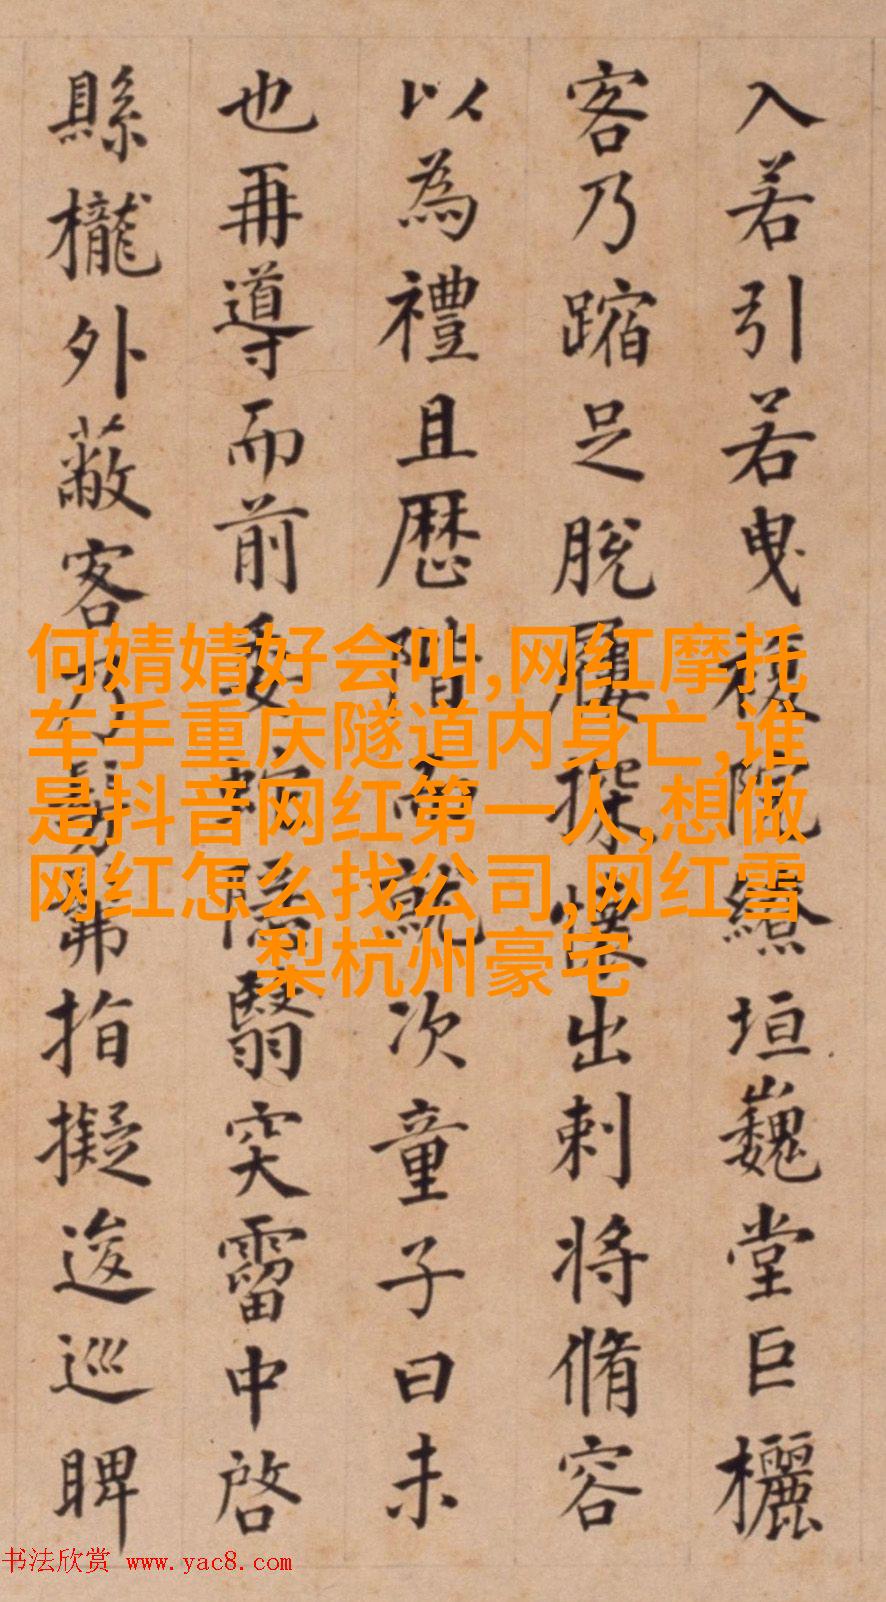 入若引若曳複院繚垣巍堂巨欐
客乃蹜足脫屨探懷出刺将脩容
以為禮且歷階而就次童子曰未
也再導而前隱翳突霤中啓
縣櫳外蔽客指擬逡巡睥
何婧婧好会叫,网红摩托
车手重庆隧道内身亡,谁
是抖音网红第一人,想做
网红怎么找公司,网红雪
梨杭州豪宅
书法欣赏 www.yac8.com